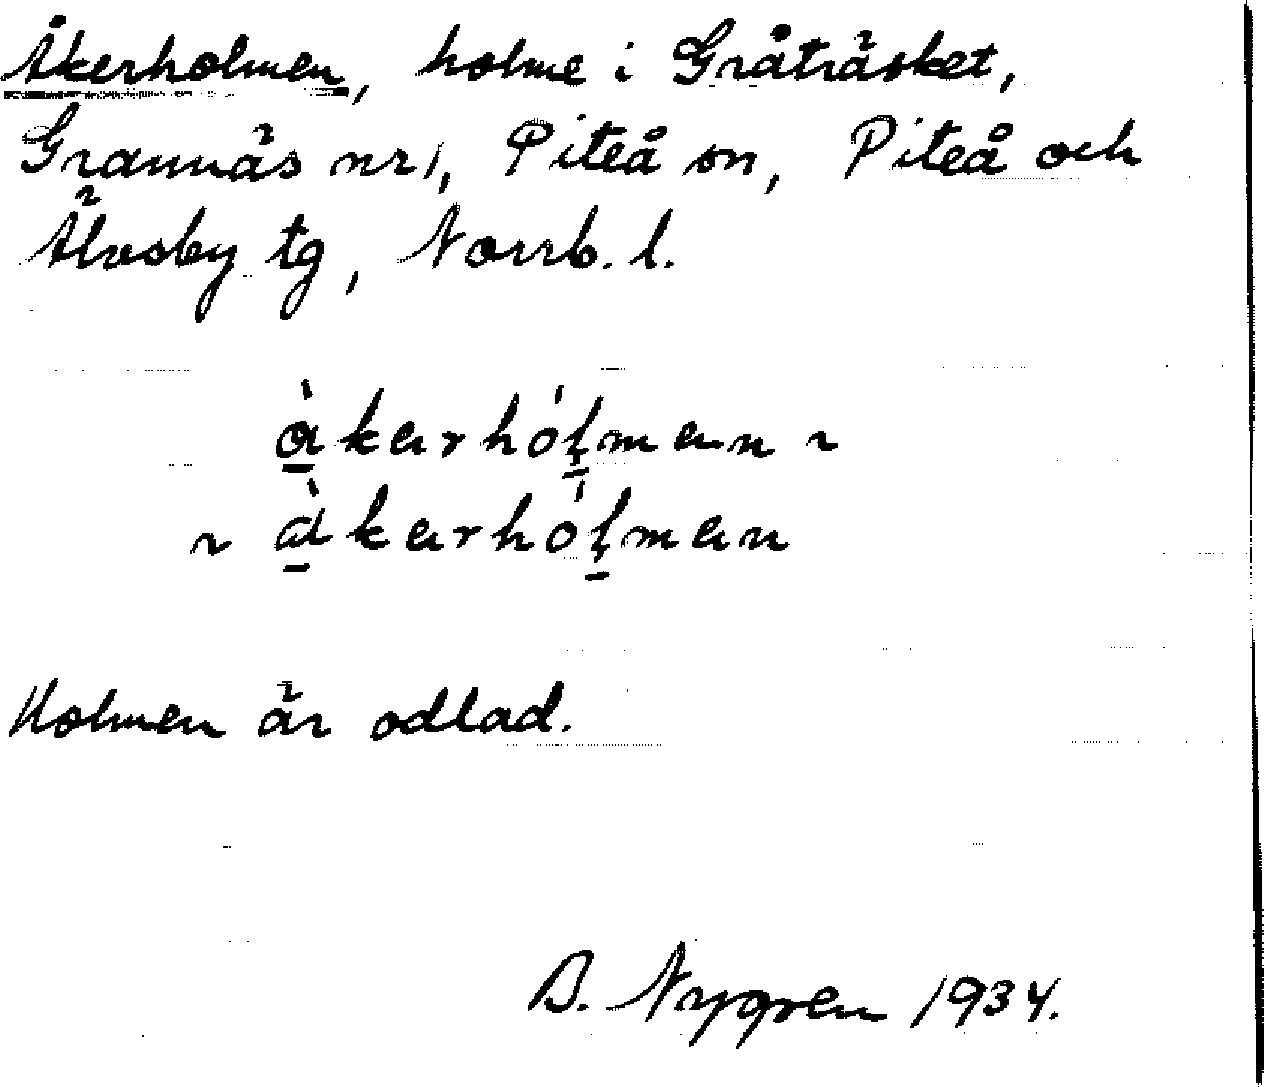 Åkerholmen, holme i Gråträsket,
Grannäs nr 1, Piteå sn, Piteå och
Älvsby tg, Norrb. l.
àkerhólmen ~
~ àkerhólmen
Holmen är odlad.
B. Nygren 1934.